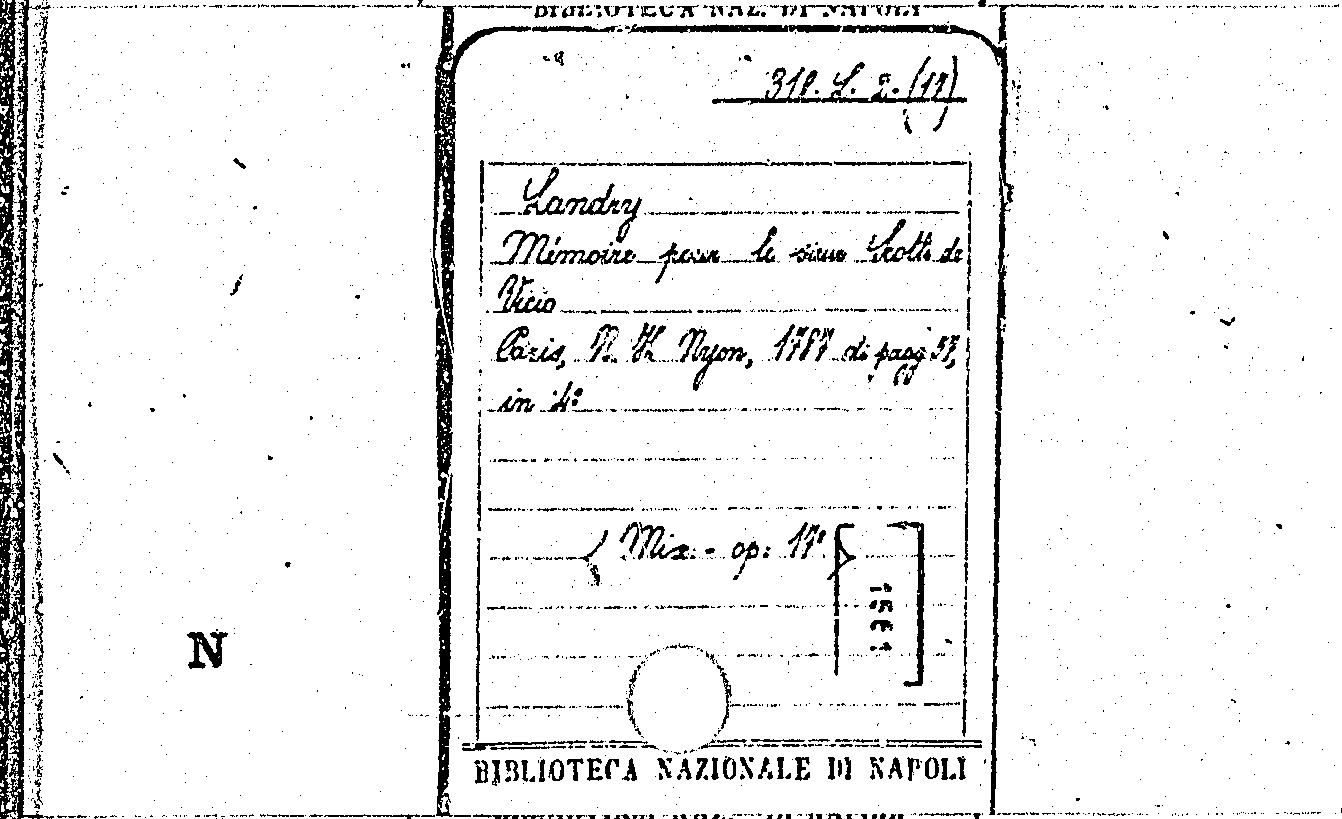 BIBLIOTECA NAZ. DI NAPOLI
318. L. 2. (17)
Landry
Mémoire pour le sieur Scotti de
Vicio
Paris, N. H. Nyon, 1787 di pagg 57,
in 4°
( Mix. - op: 17° )
1561
N
BIBLIOTECA NAZIONALE DI NAPOLI